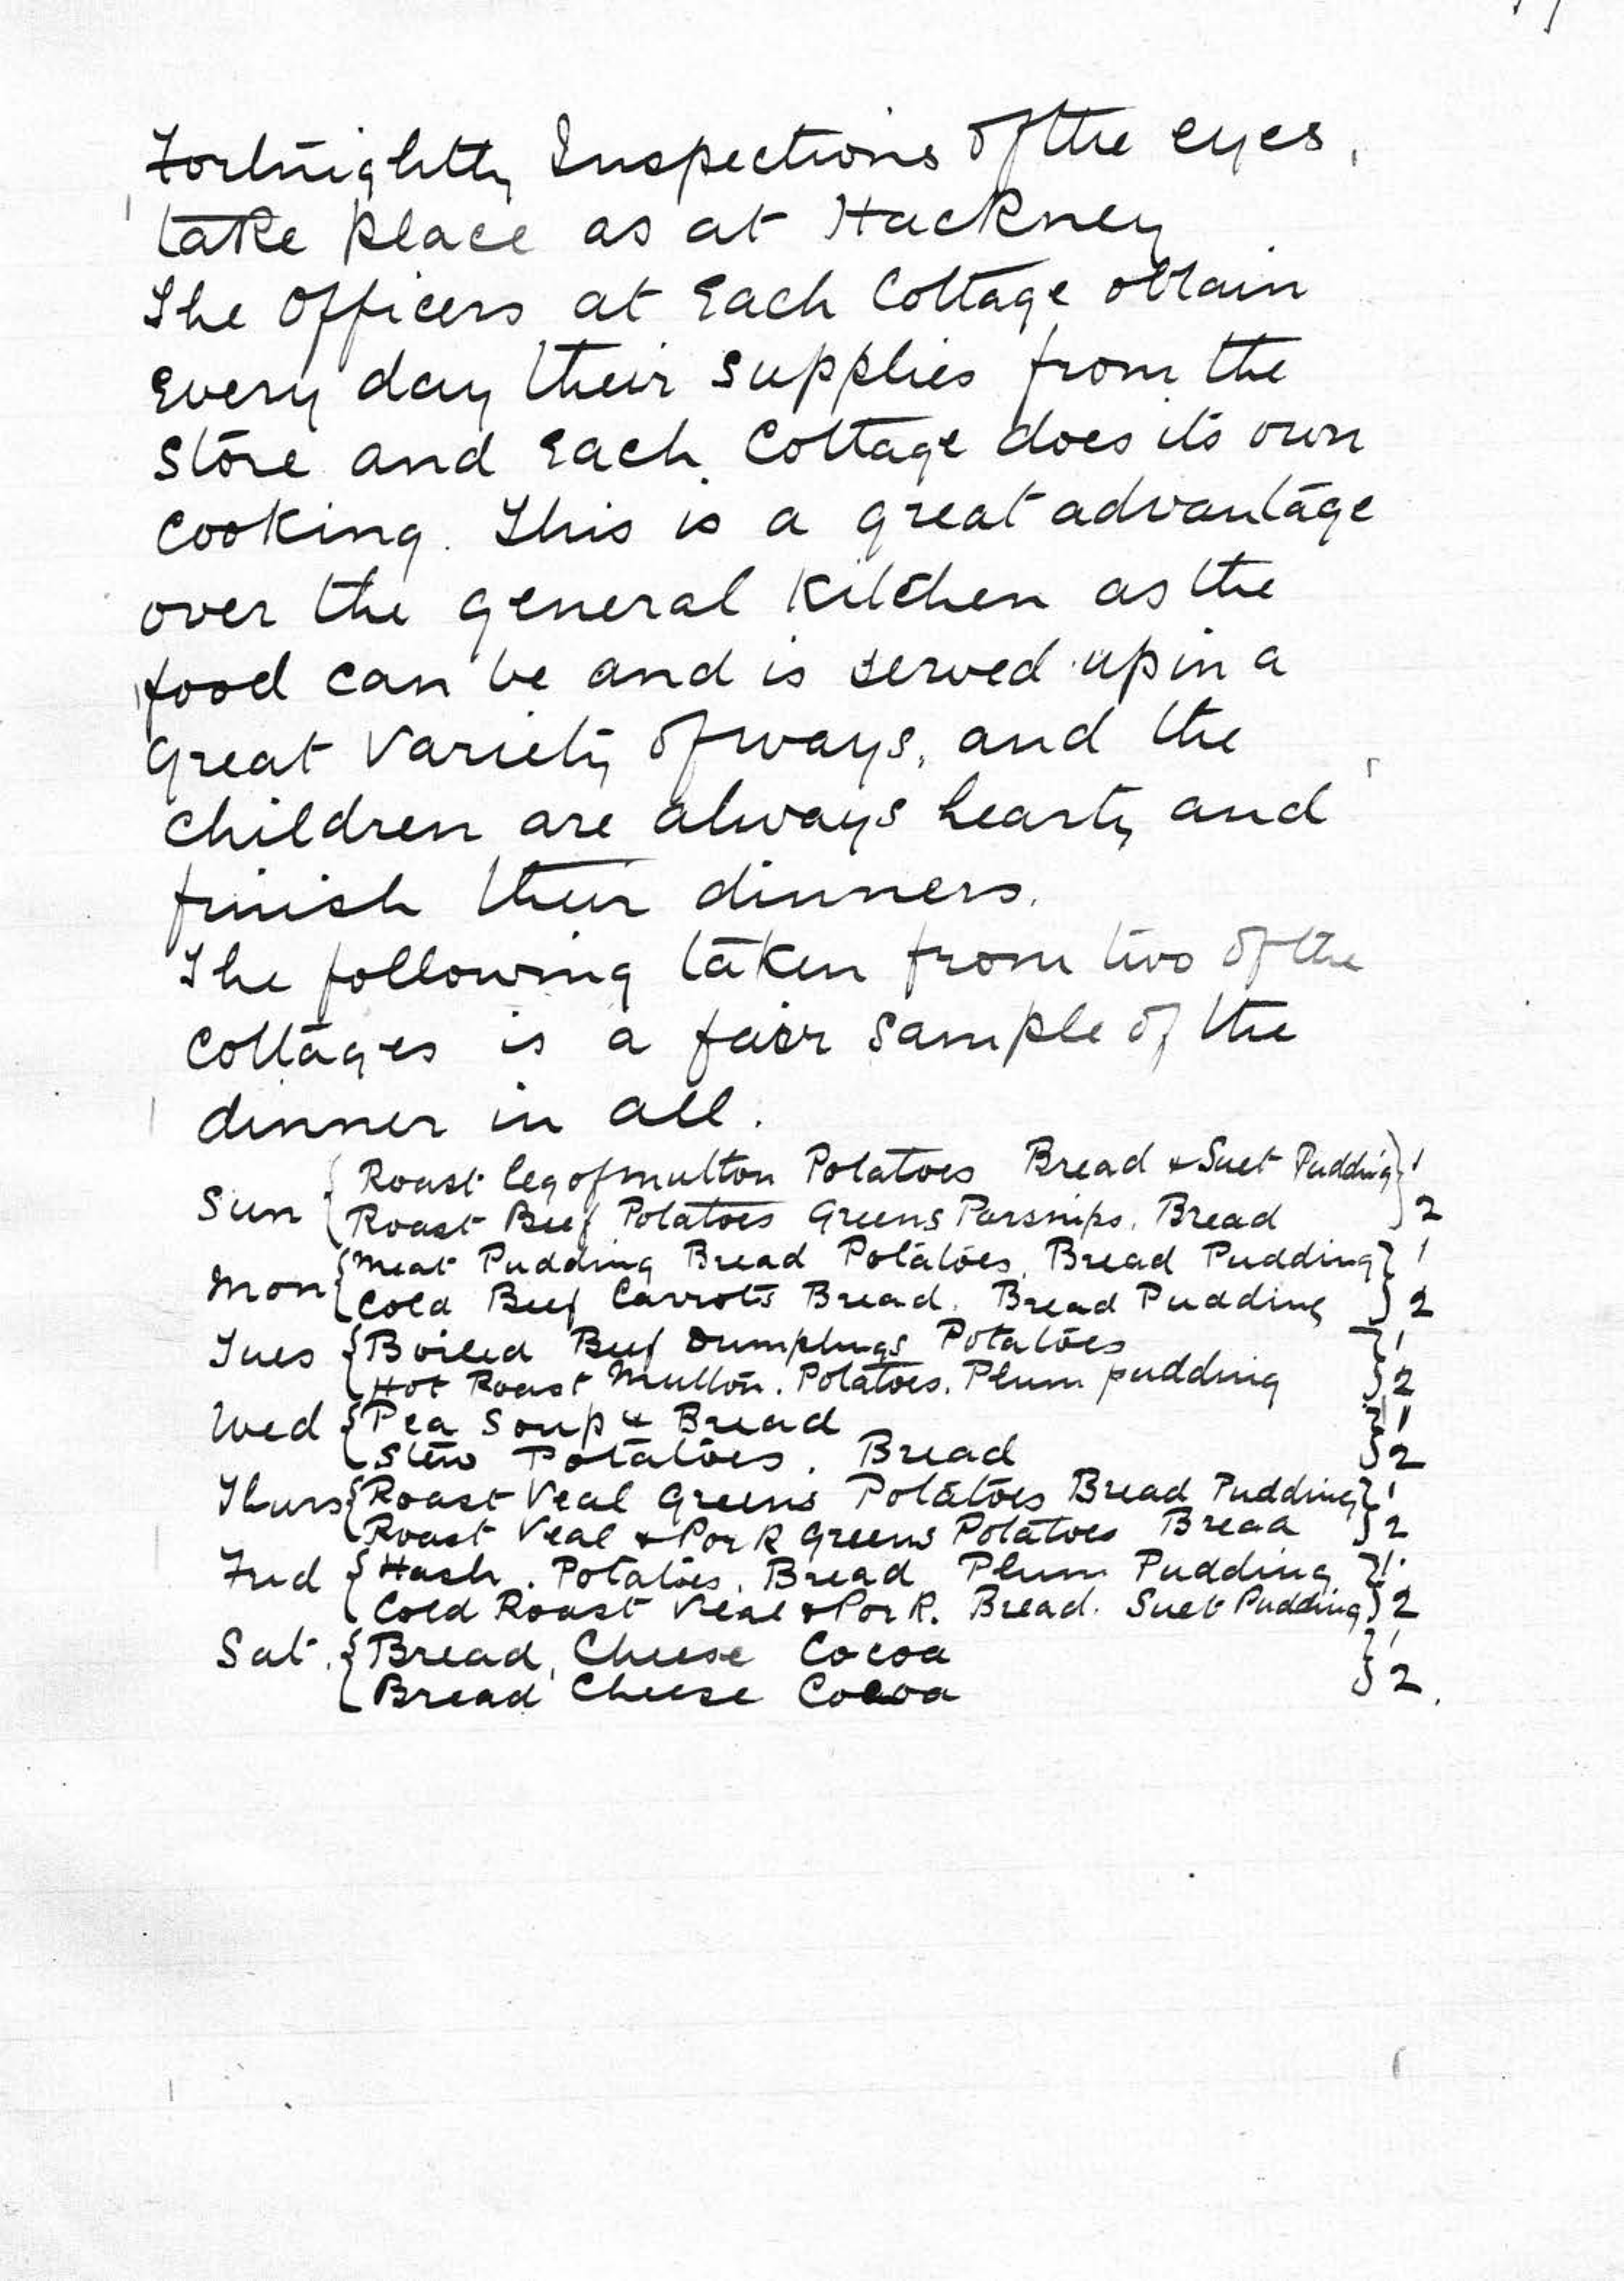 Fortnightly Inspections of the eyes,
take place as at Hackney
The Officers at Each Cottage obtain
Every day their supplies from the
Store and Each Cottage does its own
Cooking. This is a great advantage
over the general Kitchen as the
food can be and is served up in a
great Variety of ways, and the
Children are always hearty and
finish their dinners.
The following taken from two of the
Cottages is a fair Sample of the
dinner in all.
Sun { Roast leg of mutton Potatoes Bread & Suet Pudding } 1
Roast Beef Potatoes Greens Parsnips. Bread } 2
Mon { Meat Pudding Bread Potatoes. Bread Pudding } 1
Cold Beef Carrots Bread. Bread Pudding } 2
Tues { Boiled Beef Dumplings Potatoes } 1
Hot Roast Mutton. Potatoes. Plum pudding } 2
Wed { Pea Soup & Bread } 1
Stew Potatoes. Bread } 2
Thurs { Roast Veal Greens Potatoes Bread Pudding } 1
Roast Veal & Pork Greens Potatoes Bread } 2
Frid { Hash. Potatoes. Bread Plum Pudding } 1
Cold Roast Veal & Pork. Bread. Suet Pudding } 2
Sat. { Bread, Cheese Cocoa } 1
Bread Cheese Cocoa } 2.